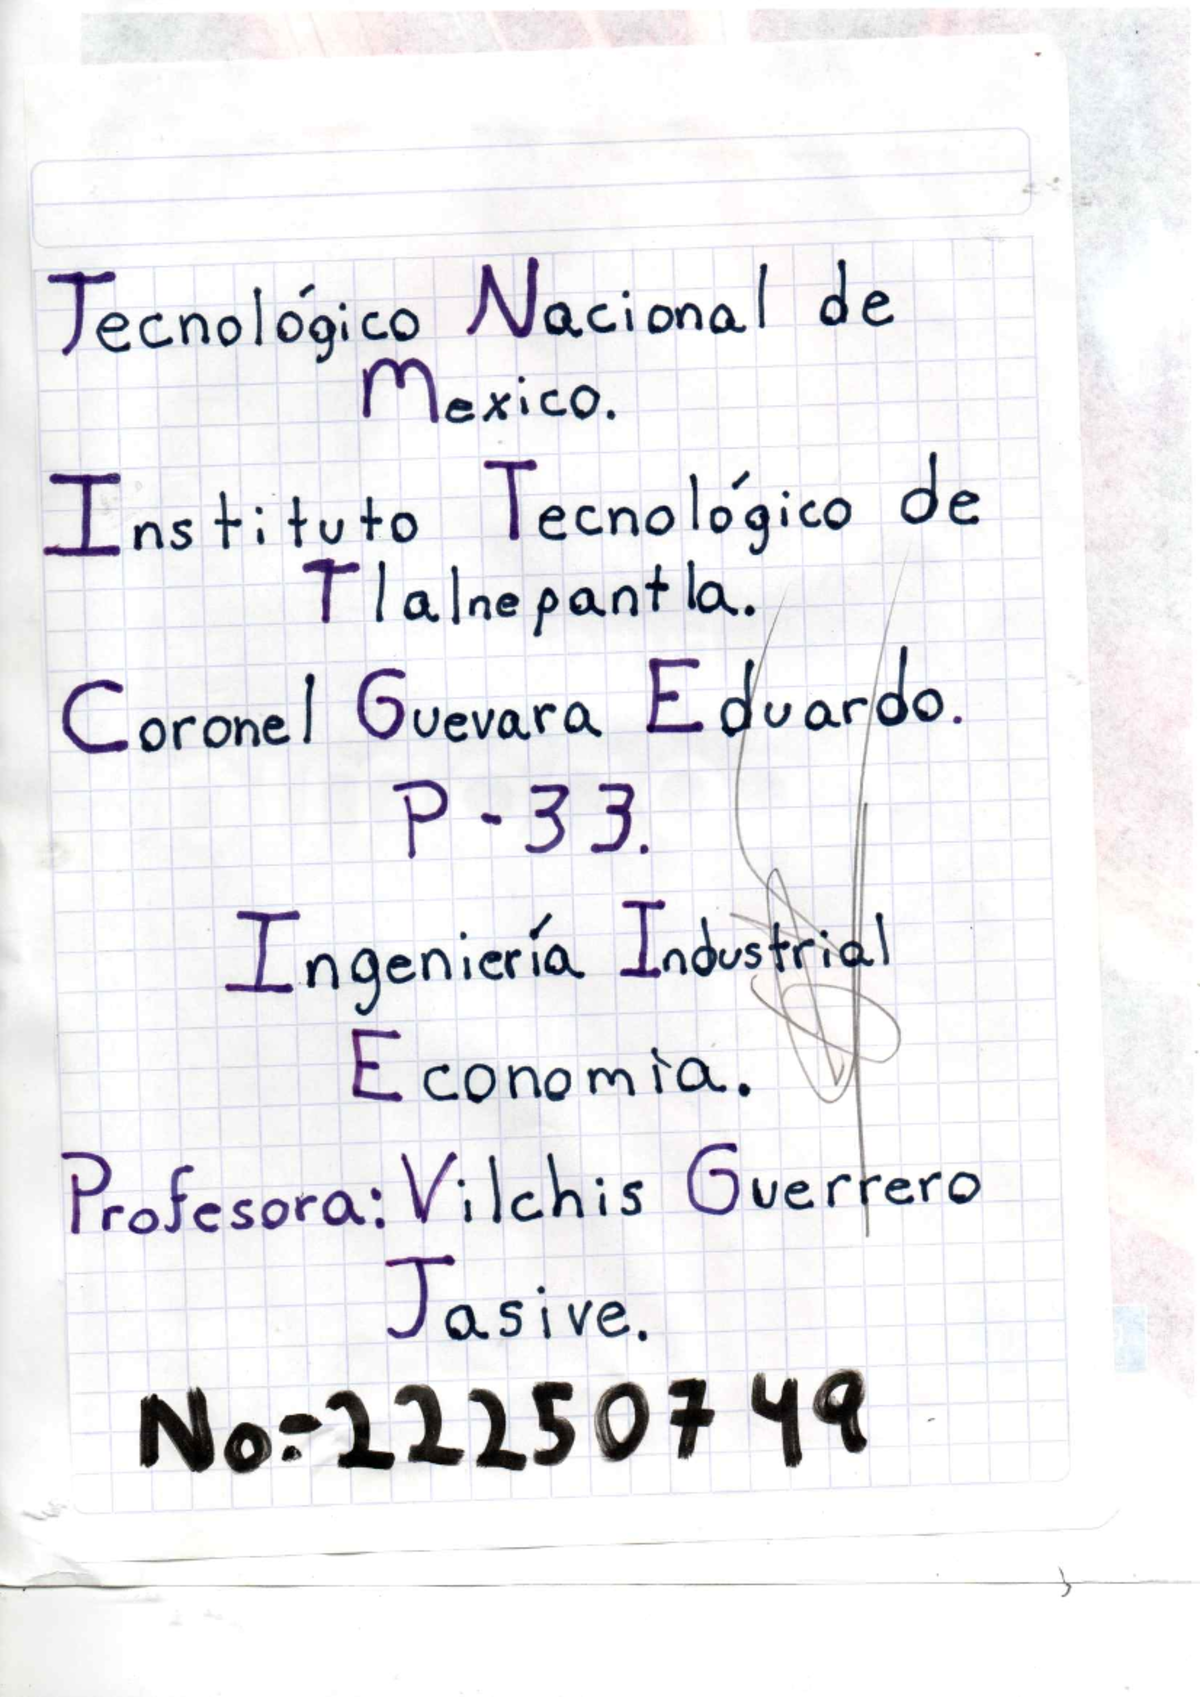 Tecnológico Nacional de
Mexico.
Instituto Tecnológico de
Tlalnepantla.
Coronel Guevara Eduardo.
P-33.
Ingeniería Industrial
Economìa.
Profesora: Vilchis Guerrero
Jasive.
No:22250749